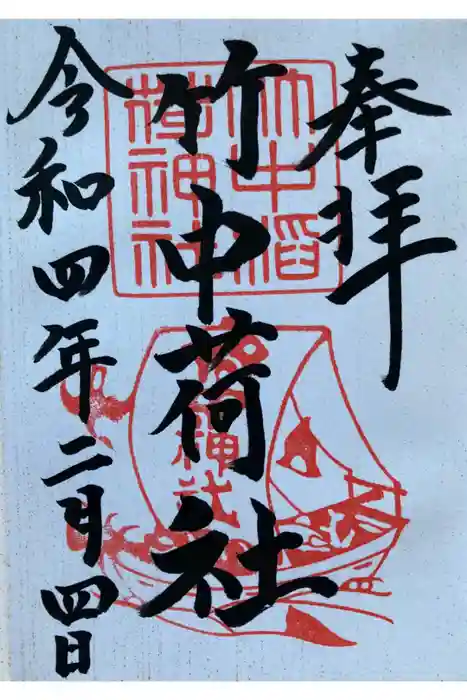 奉拝
竹中荷社
令和四年二月四日
竹中稲
荷神社